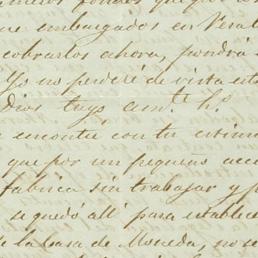 fondos que
embargados en Vera
cobrarlos ahora, pondrá
Yo no perderé de vista est
Dios tuyo am.te h.o
encontré con tu estima
que por un pequeño acc
fabrica sin trabajar y p
se quedó allí para establec
de la Casa de Moneda, no se